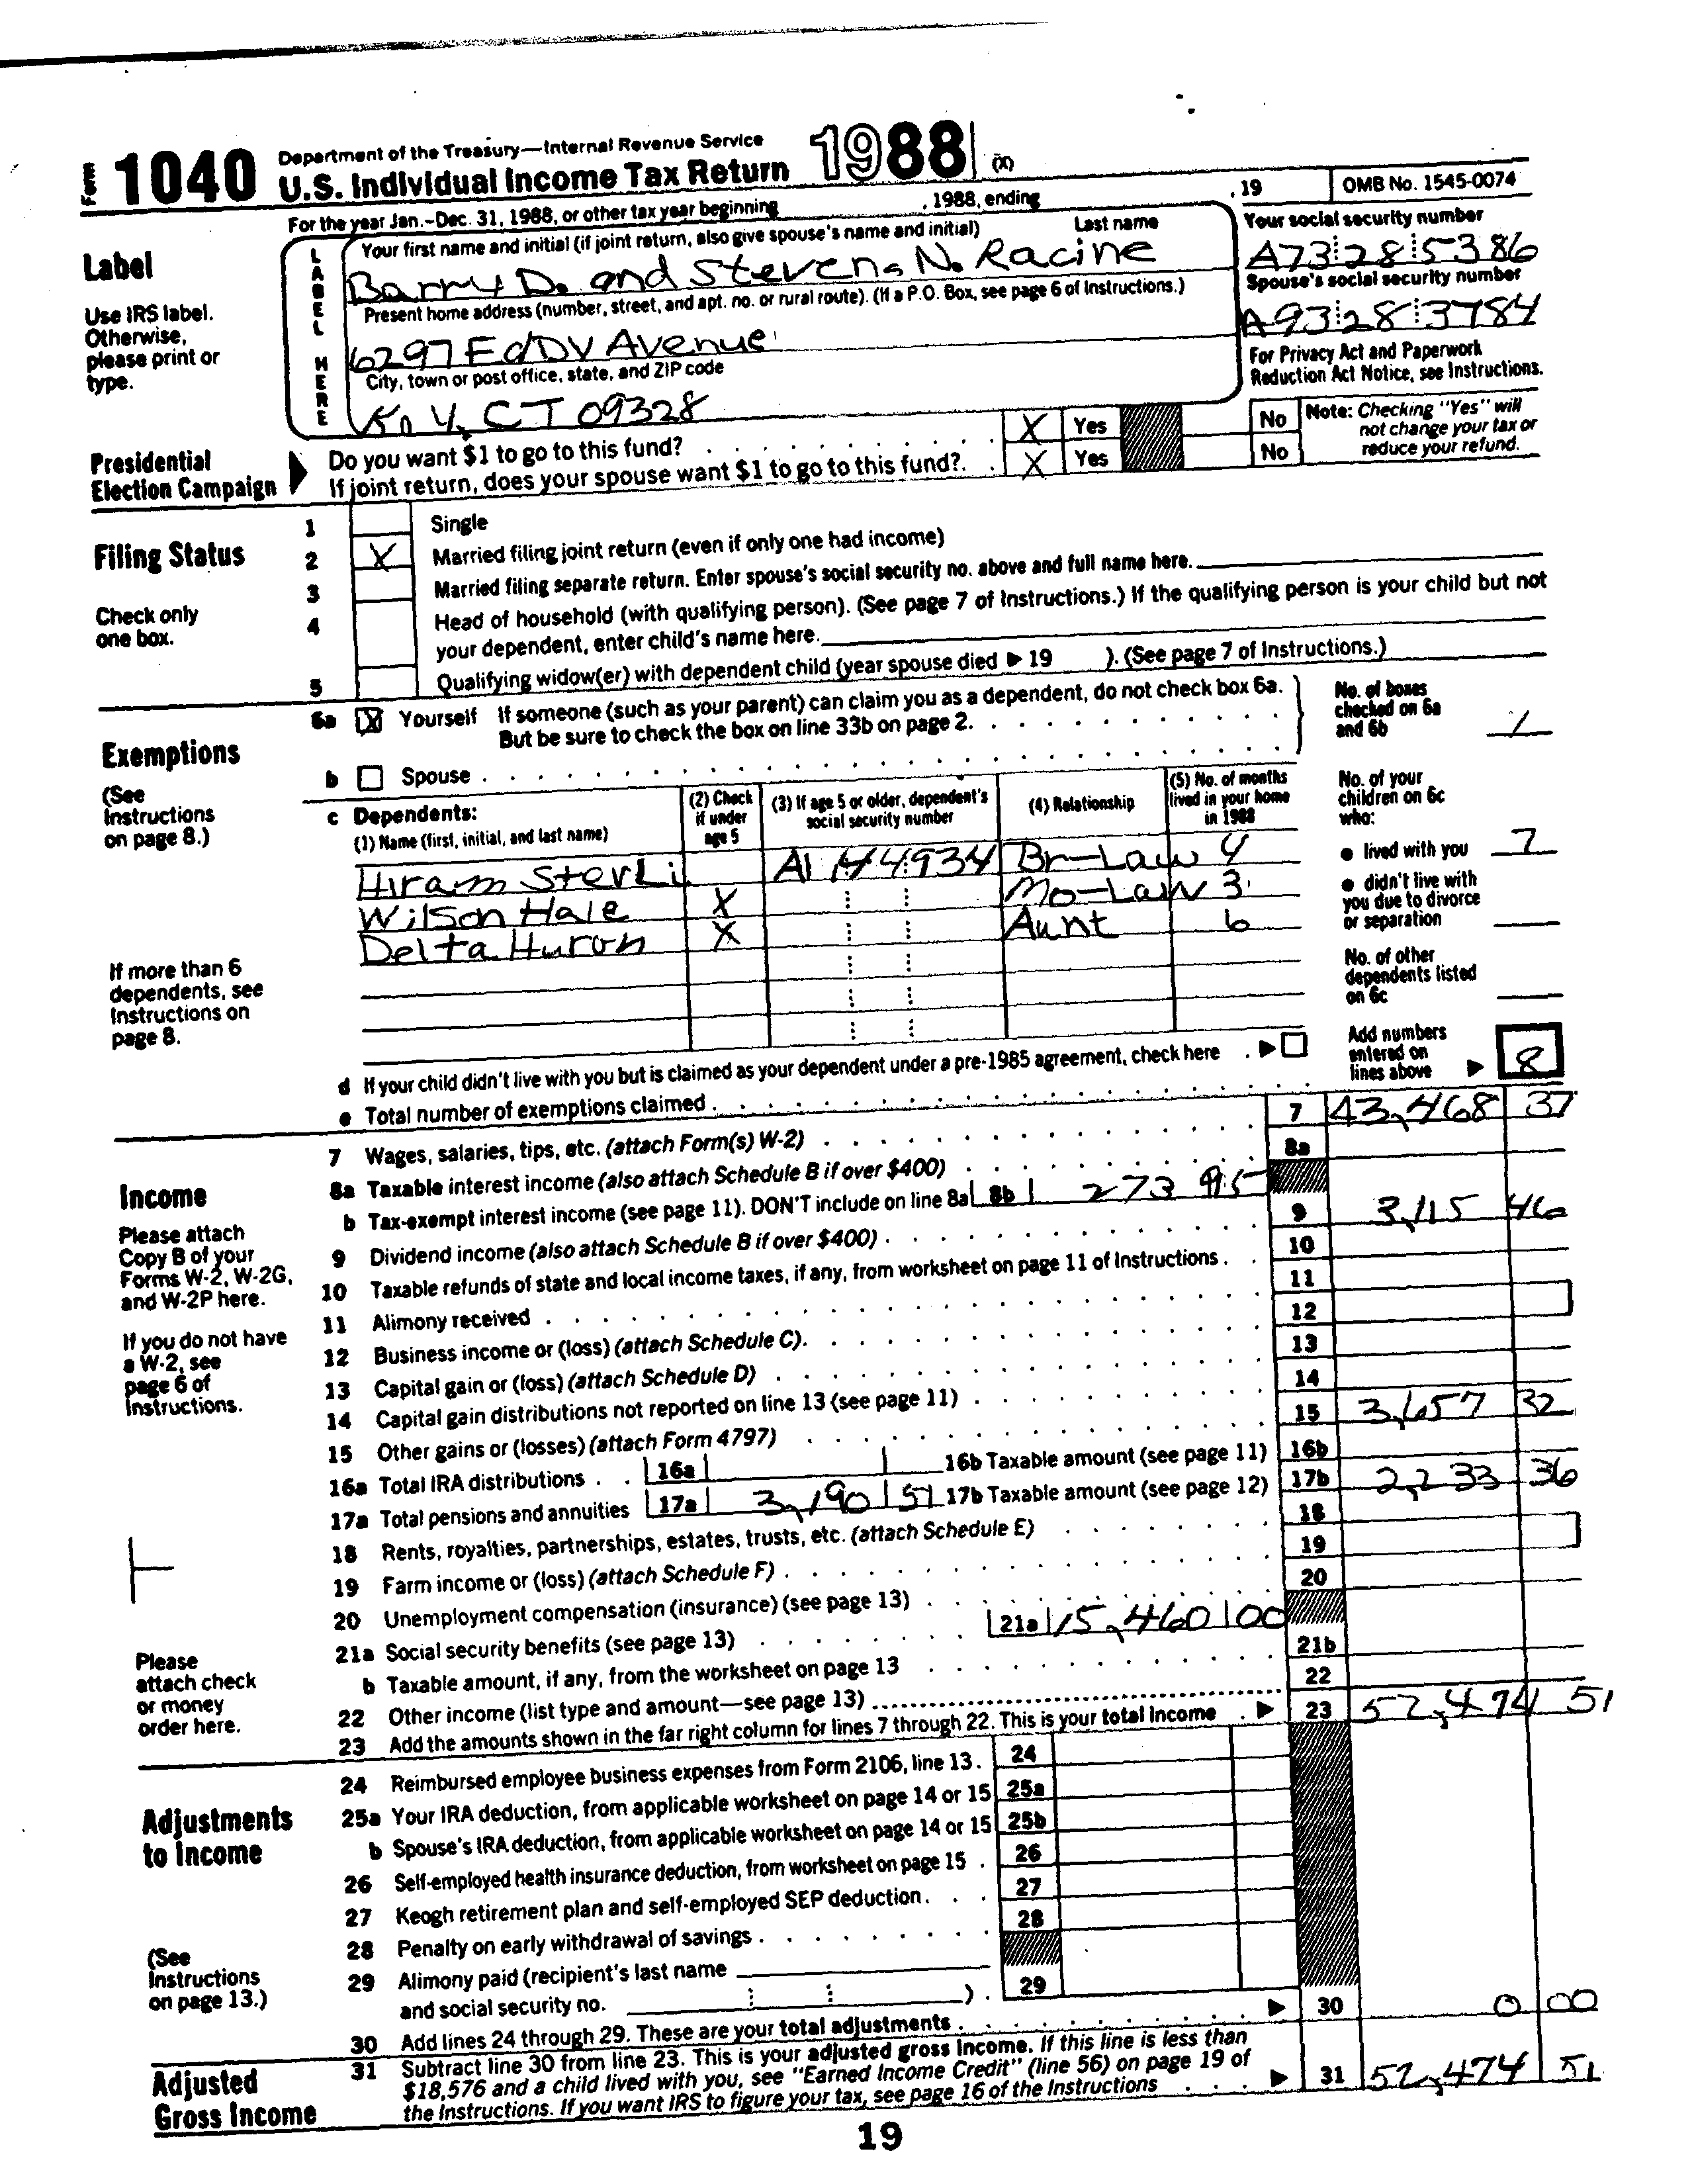 Form 1040 Department of the Treasury—Internal Revenue Service
U.S. Individual Income Tax Return 1988 (X)
For the year Jan.-Dec. 31, 1988, or other tax year beginning , 1988, ending , 19 OMB No. 1545-0074
Label
Use IRS label. Otherwise, please print or type.
LABEL HERE
Your first name and initial (if joint return, also give spouse's name and initial) Last name
Barry D. and Steven N. Racine
Your social security number
A73 28 5386
Present home address (number, street, and apt. no. or rural route). (If a P.O. Box, see page 6 of Instructions.)
6297 EdDV Avenue
Spouse's social security number
A93 28 3784
City, town or post office, state, and ZIP code
CT 09328
For Privacy Act and Paperwork Reduction Act Notice, see Instructions.
Presidential Election Campaign
Do you want $1 to go to this fund? X Yes No
If joint return, does your spouse want $1 to go to this fund? X Yes No
Note: Checking "Yes" will not change your tax or reduce your refund.
Filing Status
Check only one box.
1 Single
2 X Married filing joint return (even if only one had income)
3 Married filing separate return. Enter spouse's social security no. above and full name here.
4 Head of household (with qualifying person). (See page 7 of Instructions.) If the qualifying person is your child but not
your dependent, enter child's name here.
5 Qualifying widow(er) with dependent child (year spouse died ▶ 19 ). (See page 7 of Instructions.)
Exemptions
(See Instructions on page 8.)
6a X Yourself If someone (such as your parent) can claim you as a dependent, do not check box 6a.
But be sure to check the box on line 33b on page 2.
b Spouse
No. of boxes checked on 6a and 6b 1
c Dependents:
(1) Name (first, initial, and last name) (2) Check if under age 5 (3) If age 5 or older, dependent's social security number (4) Relationship (5) No. of months lived in your home in 1988
Hiram Sterli Br-Law 4
Wilson Hale X Mo-Law 3
Delta Huron X Aunt 6
No. of your children on 6c who:
● lived with you 7
● didn't live with you due to divorce or separation
No. of other dependents listed on 6c
If more than 6 dependents, see Instructions on page 8.
d If your child didn't live with you but is claimed as your dependent under a pre-1985 agreement, check here ▶
e Total number of exemptions claimed
Add numbers entered on lines above ▶ 8
Income
Please attach Copy B of your Forms W-2, W-2G, and W-2P here.
If you do not have a W-2, see page 6 of Instructions.
Please attach check or money order here.
7 Wages, salaries, tips, etc. (attach Form(s) W-2) 7 43,468 37
8a Taxable interest income (also attach Schedule B if over $400) 8a
b Tax-exempt interest income (see page 11). DON'T include on line 8a 8b 273 95
9 Dividend income (also attach Schedule B if over $400) 9 3,115 46
10 Taxable refunds of state and local income taxes, if any, from worksheet on page 11 of Instructions 10
11 Alimony received 11
12 Business income or (loss) (attach Schedule C) 12
13 Capital gain or (loss) (attach Schedule D) 13
14 Capital gain distributions not reported on line 13 (see page 11) 14
15 Other gains or (losses) (attach Form 4797) 15 3,657 32
16a Total IRA distributions 16a 16b Taxable amount (see page 11) 16b
17a Total pensions and annuities 17a 3,190 51 17b Taxable amount (see page 12) 17b 2,233 36
18 Rents, royalties, partnerships, estates, trusts, etc. (attach Schedule E) 18
19 Farm income or (loss) (attach Schedule F) 19
20 Unemployment compensation (insurance) (see page 13) 20
21a Social security benefits (see page 13) 21a 15,460 00
b Taxable amount, if any, from the worksheet on page 13 21b
22 Other income (list type and amount—see page 13) 22
23 Add the amounts shown in the far right column for lines 7 through 22. This is your total income ▶ 23 52,474 51
Adjustments to Income
(See Instructions on page 13.)
24 Reimbursed employee business expenses from Form 2106, line 13 24
25a Your IRA deduction, from applicable worksheet on page 14 or 15 25a
b Spouse's IRA deduction, from applicable worksheet on page 14 or 15 25b
26 Self-employed health insurance deduction, from worksheet on page 15 26
27 Keogh retirement plan and self-employed SEP deduction 27
28 Penalty on early withdrawal of savings 28
29 Alimony paid (recipient's last name
and social security no. ) 29
30 Add lines 24 through 29. These are your total adjustments ▶ 30 0 00
Adjusted Gross Income
31 Subtract line 30 from line 23. This is your adjusted gross income. If this line is less than
$18,576 and a child lived with you, see "Earned Income Credit" (line 56) on page 19 of
the Instructions. If you want IRS to figure your tax, see page 16 of the Instructions ▶ 31 52,474 51
19